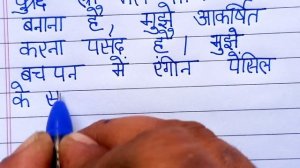 बनाना है, मुझे आकर्षित
करना पसंद है। मुझे
बचपन में रंगीन पेंसिल
के स